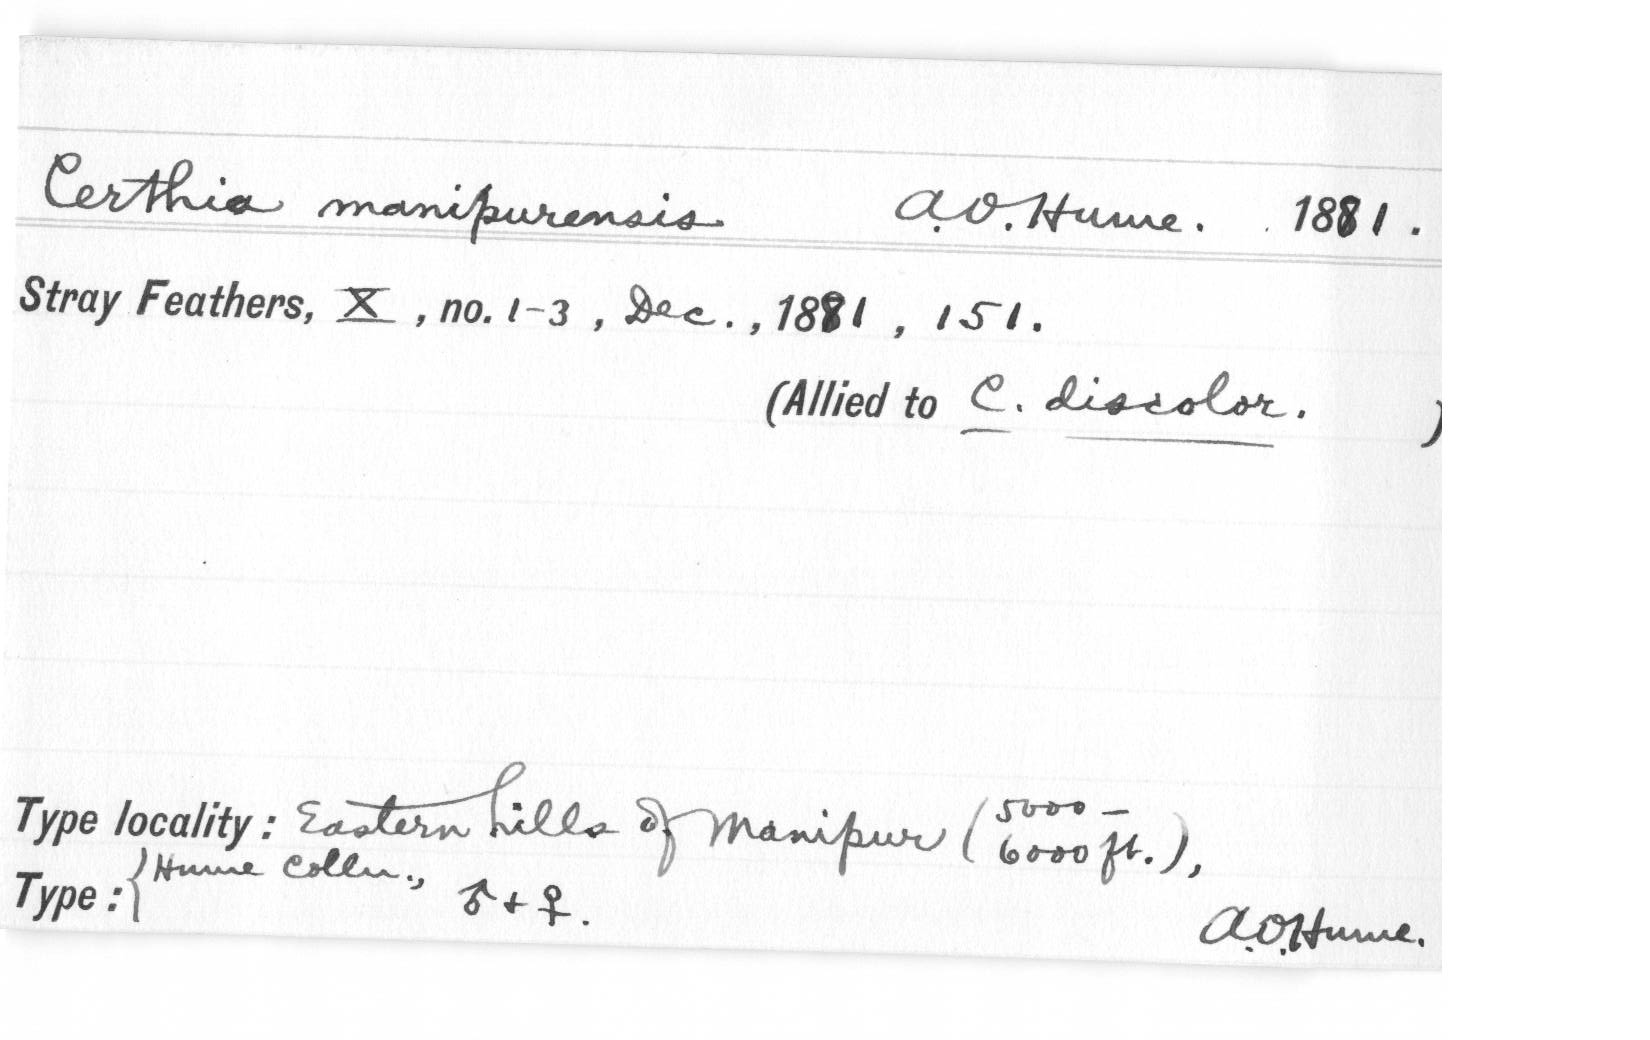 Certhia manipurensis A.O. Hume. 1881.
Stray Feathers, X, no. 1-3, Dec., 1881, 151.
(Allied to C. discolor. )
Type locality: Eastern hills of Manipur (5000 – 6000 ft.),
Type: { Hume Colln., ♂ + ♀.
A.O. Hume.